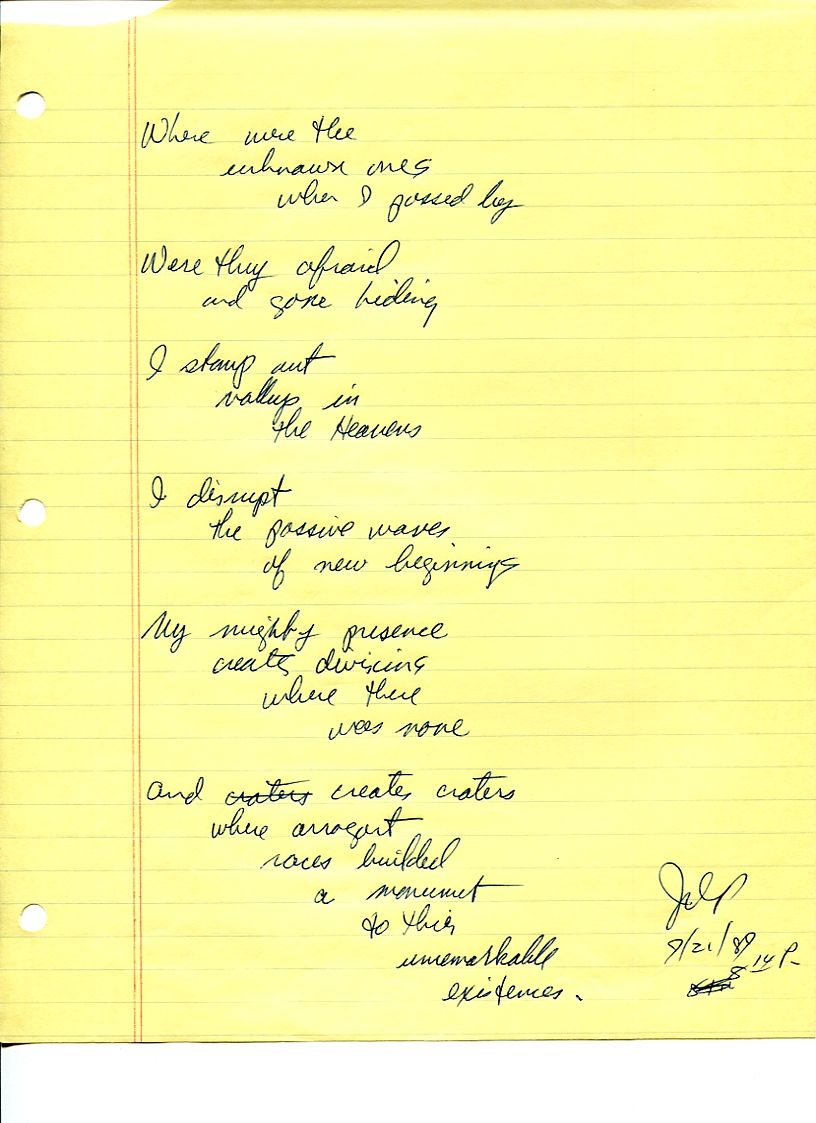 Where were the
unknown ones
when I passed by
Were they afraid
and gone hiding
I stamp out
valleys in
the Heavens
I disrupt
the passive waves
of new beginnings
My mighty presence
creates divisions
where there
was none
and craters creates craters
where arrogant
races builded
a monumet
to this
unremarkable
existences.
9/21/89
8 14 P-